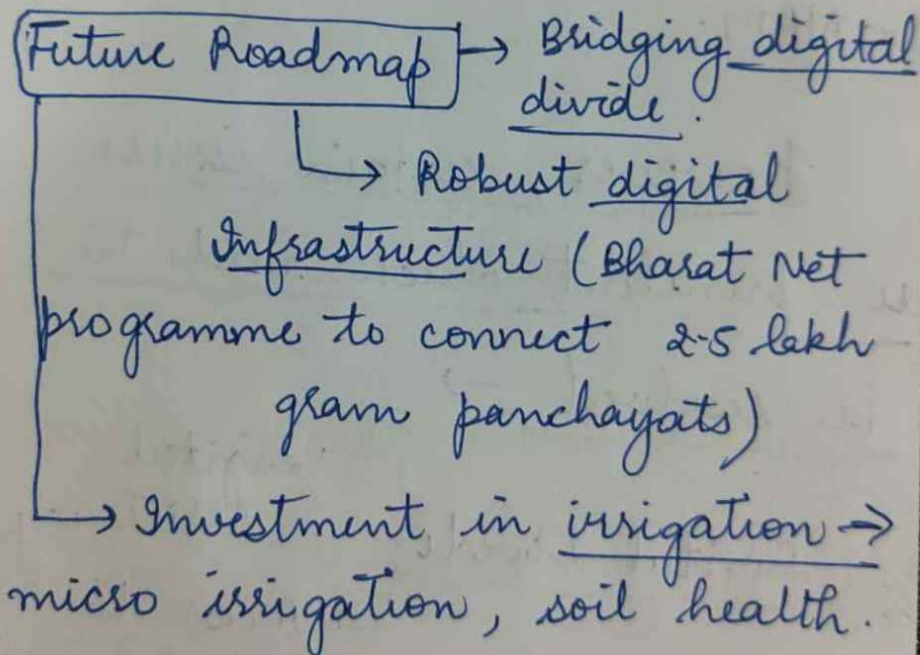 Future Roadmap → Bridging digital
divide.
→ Robust digital
Infrastructure (Bharat Net
programme to connect 2.5 lakh
gram panchayats)
→ Investment in irrigation →
micro irrigation, soil health.